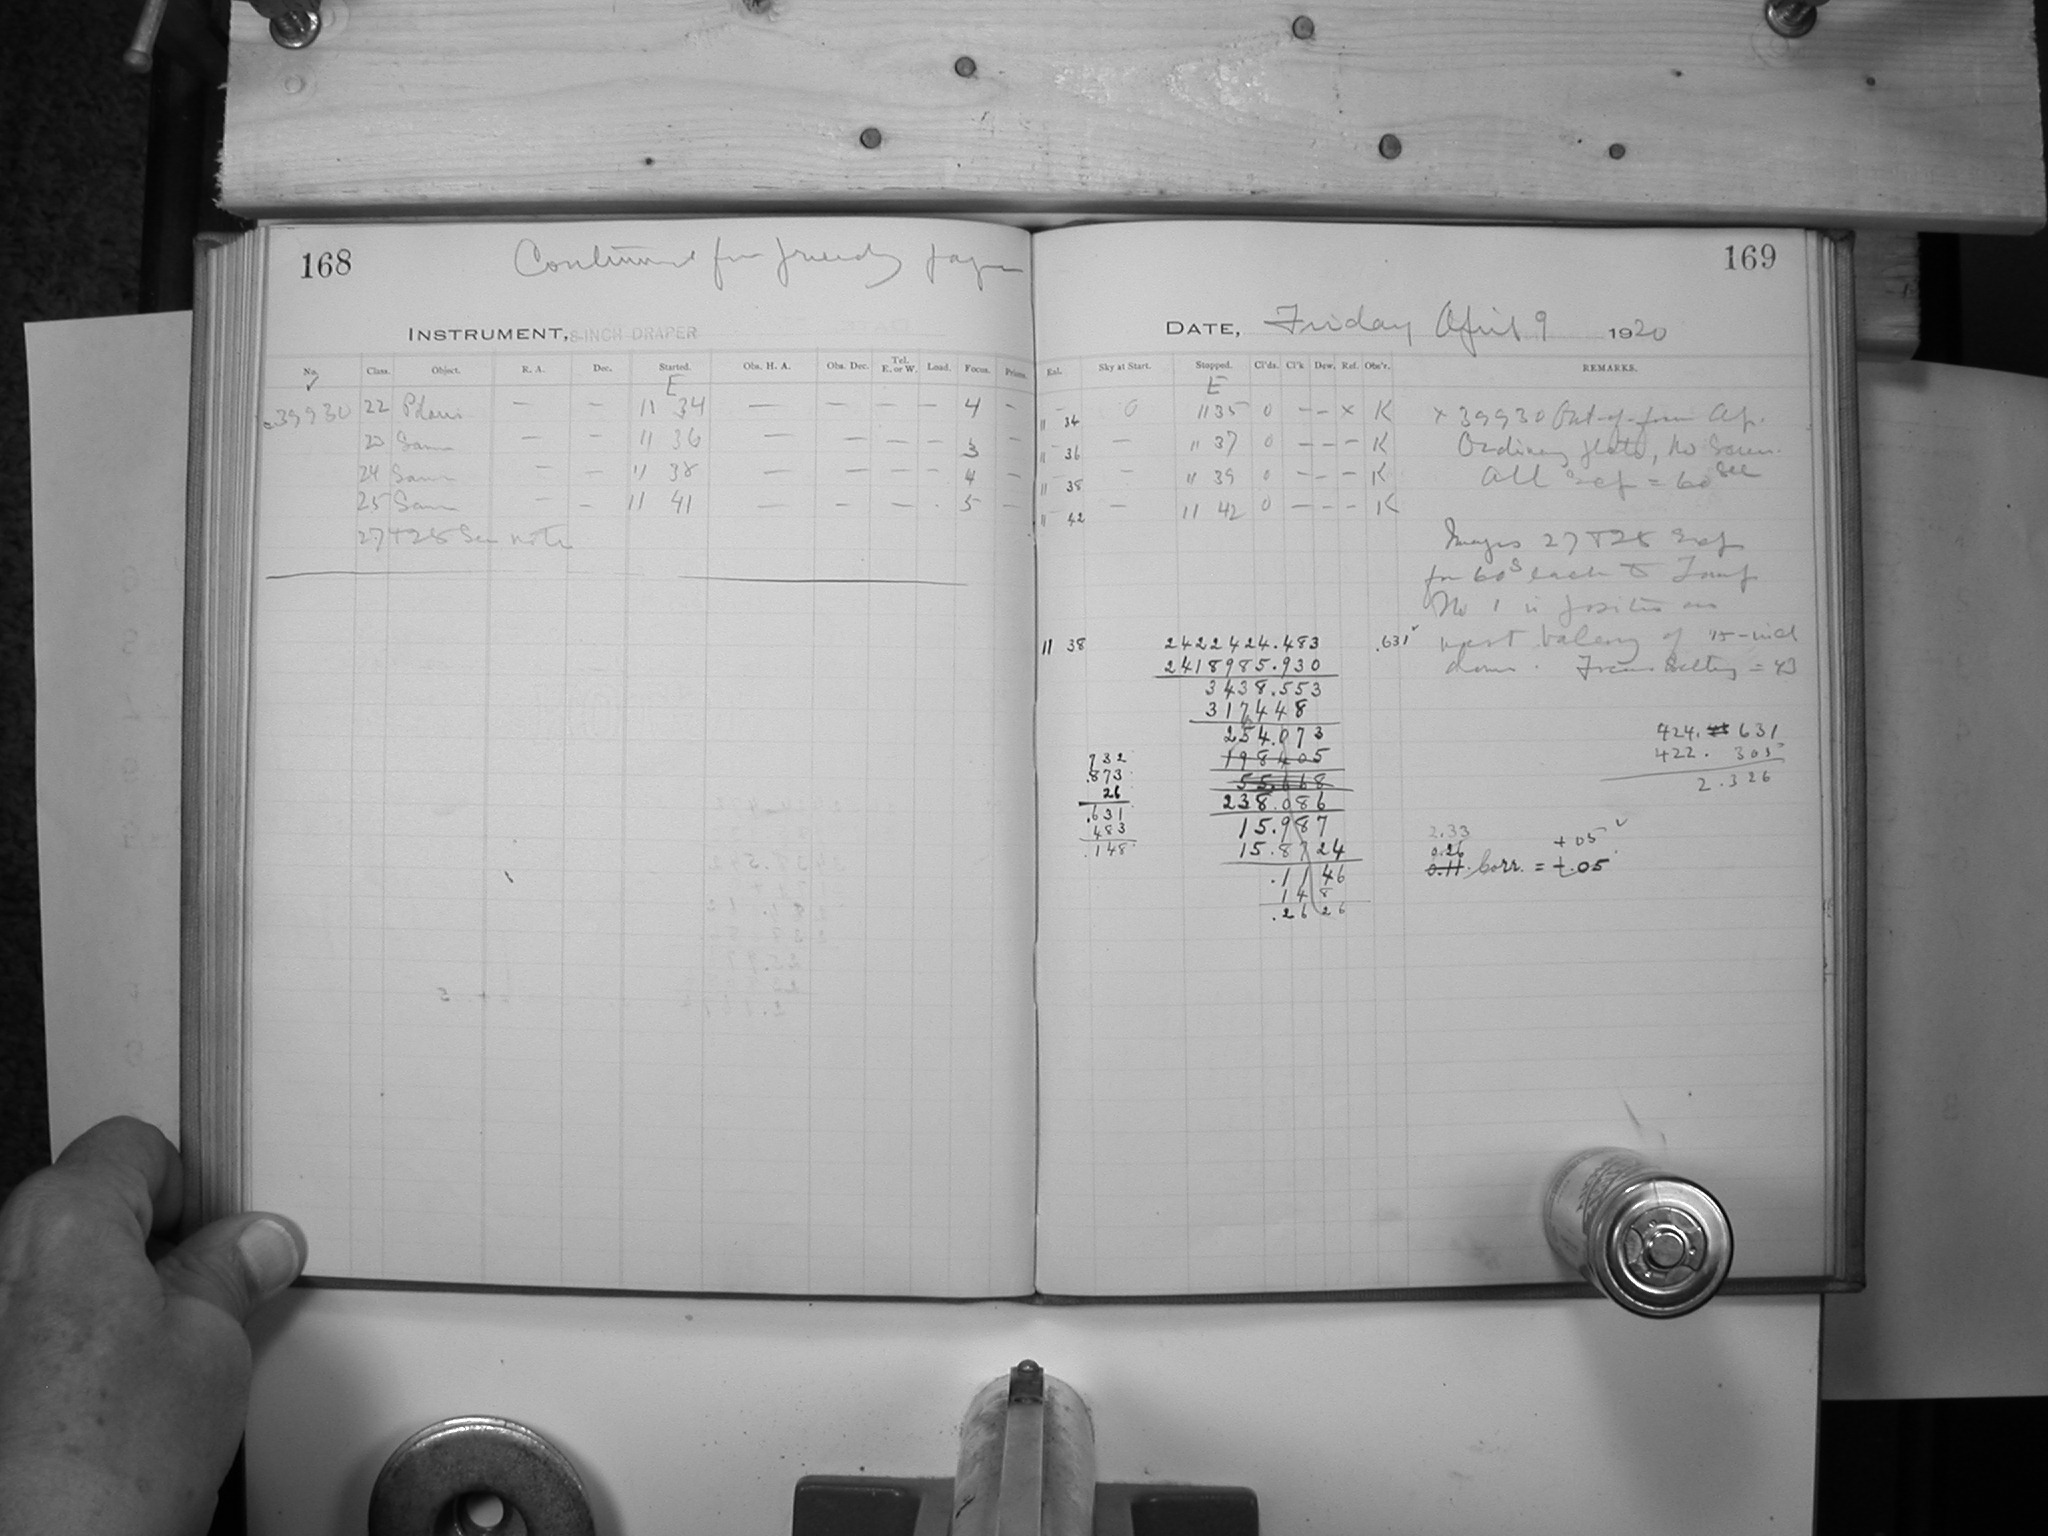 168
INSTRUMENT, 8-INCH DRAPER
No. Class. Object. R. A. Dec. Started. Obs. H. A. Obs. Dec. Tel. E. or W. Load. Focus. Prisms.
✓ E
c39930 22 Polaris — — 11 34 — — — — 4 —
23 Same — — 11 36 — — — — 3 —
24 Same — — 11 38 — — — — 4 —
25 Same — — 11 41 — — — . 5 —
27+28 See note
169
DATE, Friday April 9 1920
Exl. Sky at Start. Stopped. Cl'ds. Cl'k Dew. Ref. Obs'r. REMARKS.
E
11 34 0 11 35 0 — — x K
11 36 — 11 37 0 — — — K
11 38 — 11 39 0 — — — K
11 42 — 11 42 0 — — — K
x 39930 Out-of-focus
Ordinary plate, no
All exp = 60 sec
Images 27 + 28 Exp
for 60s each
No 1 in position on
west balcony of 15-inch
dome. = 43
11 38 2422424.483 .631✓
2418985.930
3438.553
317448
254.073
198405
55.668
238.086
15.987
15.8724
.1146
148
.2626
732
.873
26
.631
483
.148
424. 631
422. 305
2.326
2.33
0.26 +05 ✓
0.11 Corr. = +.05